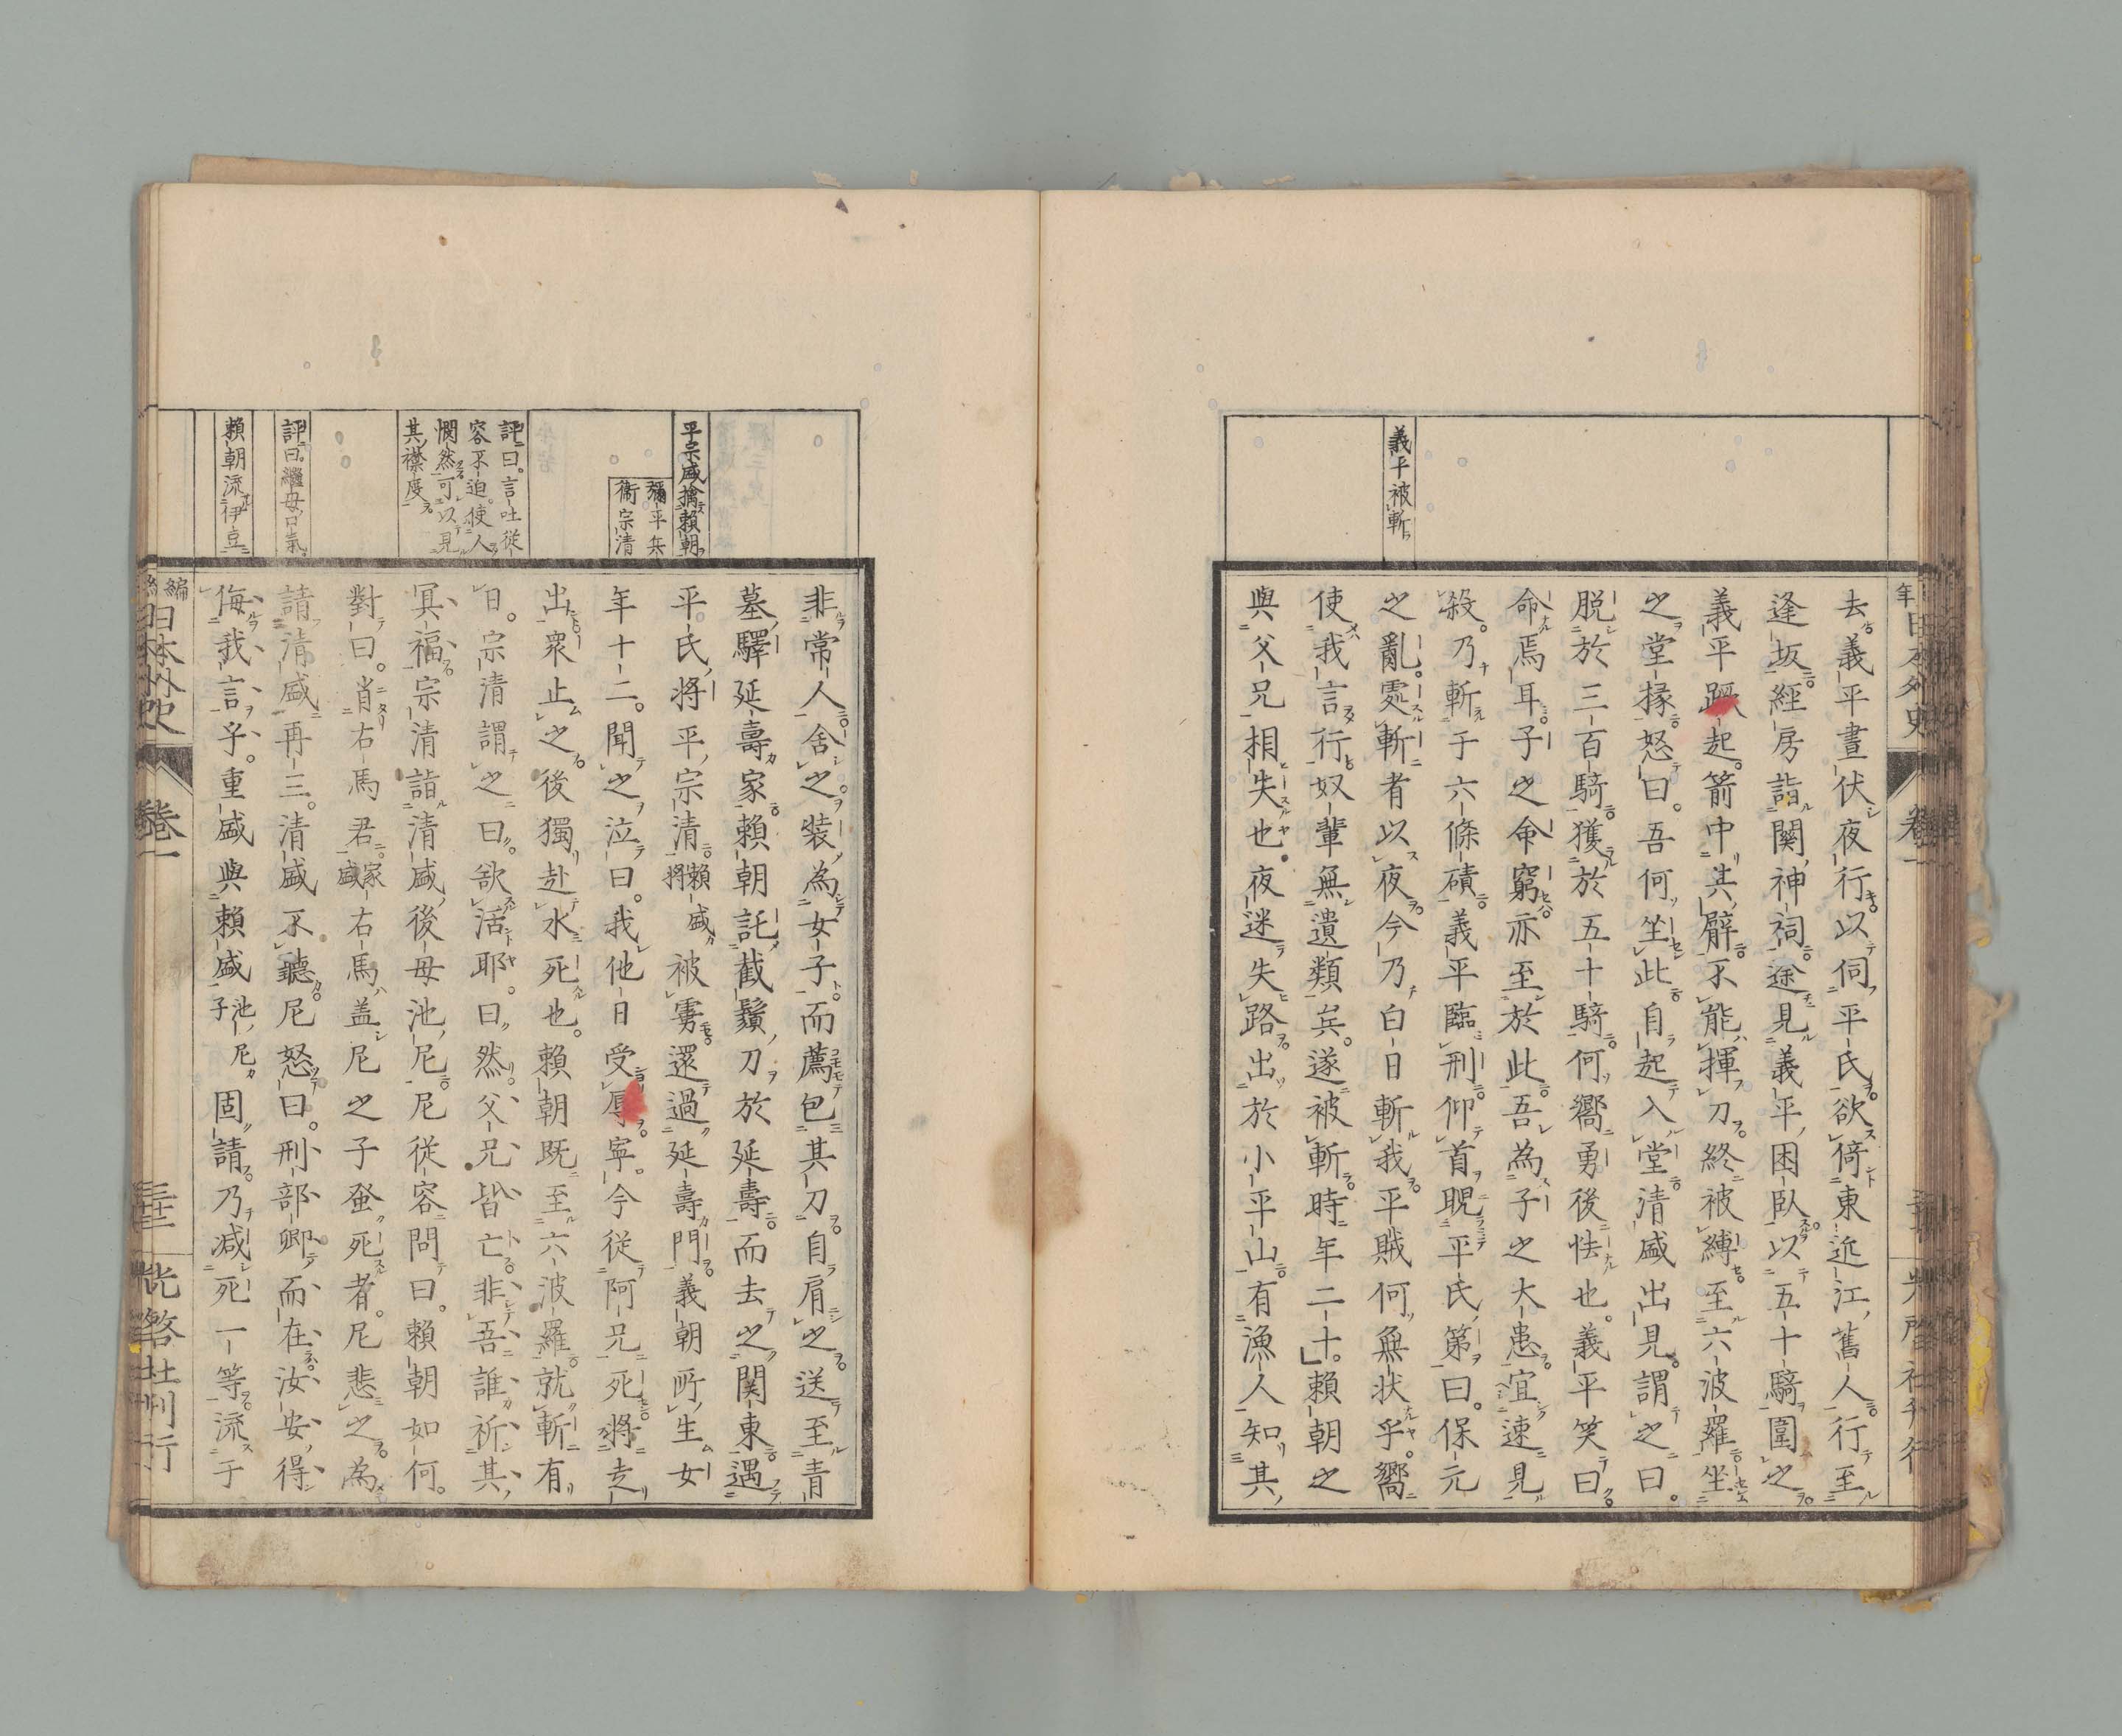 義平被斬
去義平晝伏夜行以伺平氏欲倚東近江舊人行至
逢坂經房詣關神祠途見義平困臥以五十騎圍之
義平蹶起箭中其臂不能揮刀終被縛至六波羅坐
之堂掾怒曰吾何坐此自起入堂清盛出見謂之曰
脱於三百騎獲於五十騎何嚮勇後怯也義平笑曰
命焉耳子之命窮亦至於此吾為子之大患宜速見
殺乃斬于六條磧義平臨刑仰首睨平氏第曰保元
之亂處斬者以夜今乃白日斬我平賊何無状乎嚮
使我言行奴輩無遺類矣遂被斬時年二十頼朝之
與父兄相失也夜迷失路出於小平山有漁人知其
平宗盛擒頼朝
彌平兵
衞宗清
評曰言吐從
容不迫使人
憫然可以見
其襟度
評曰繼母口氣
頼朝流伊豆
非常人舍之装為女子而薦包其刀自肩之送至青
墓驛延壽家頼朝託截鬚刀於延壽而去之關東遇
平氏將平宗清頼盛將被虜還過延壽門義朝所生女
年十二聞之泣曰我他日受辱寧今從阿兄死將走
出衆止之後獨赴水死也頼朝既至六波羅就斬有
日宗清謂之曰欲活耶曰然父兄皆亡非吾誰祈其
冥福宗清詣清盛後母池尼尼從容問曰頼朝如何
對曰肖右馬君家盛右馬盖尼之子蚤死者尼悲之為
請清盛再三清盛不聽尼怒曰刑部卿而在汝安得
侮我言乎重盛與頼盛池尼子固請乃減死一等流于
編年日本外史
卷一
光啓社刊行